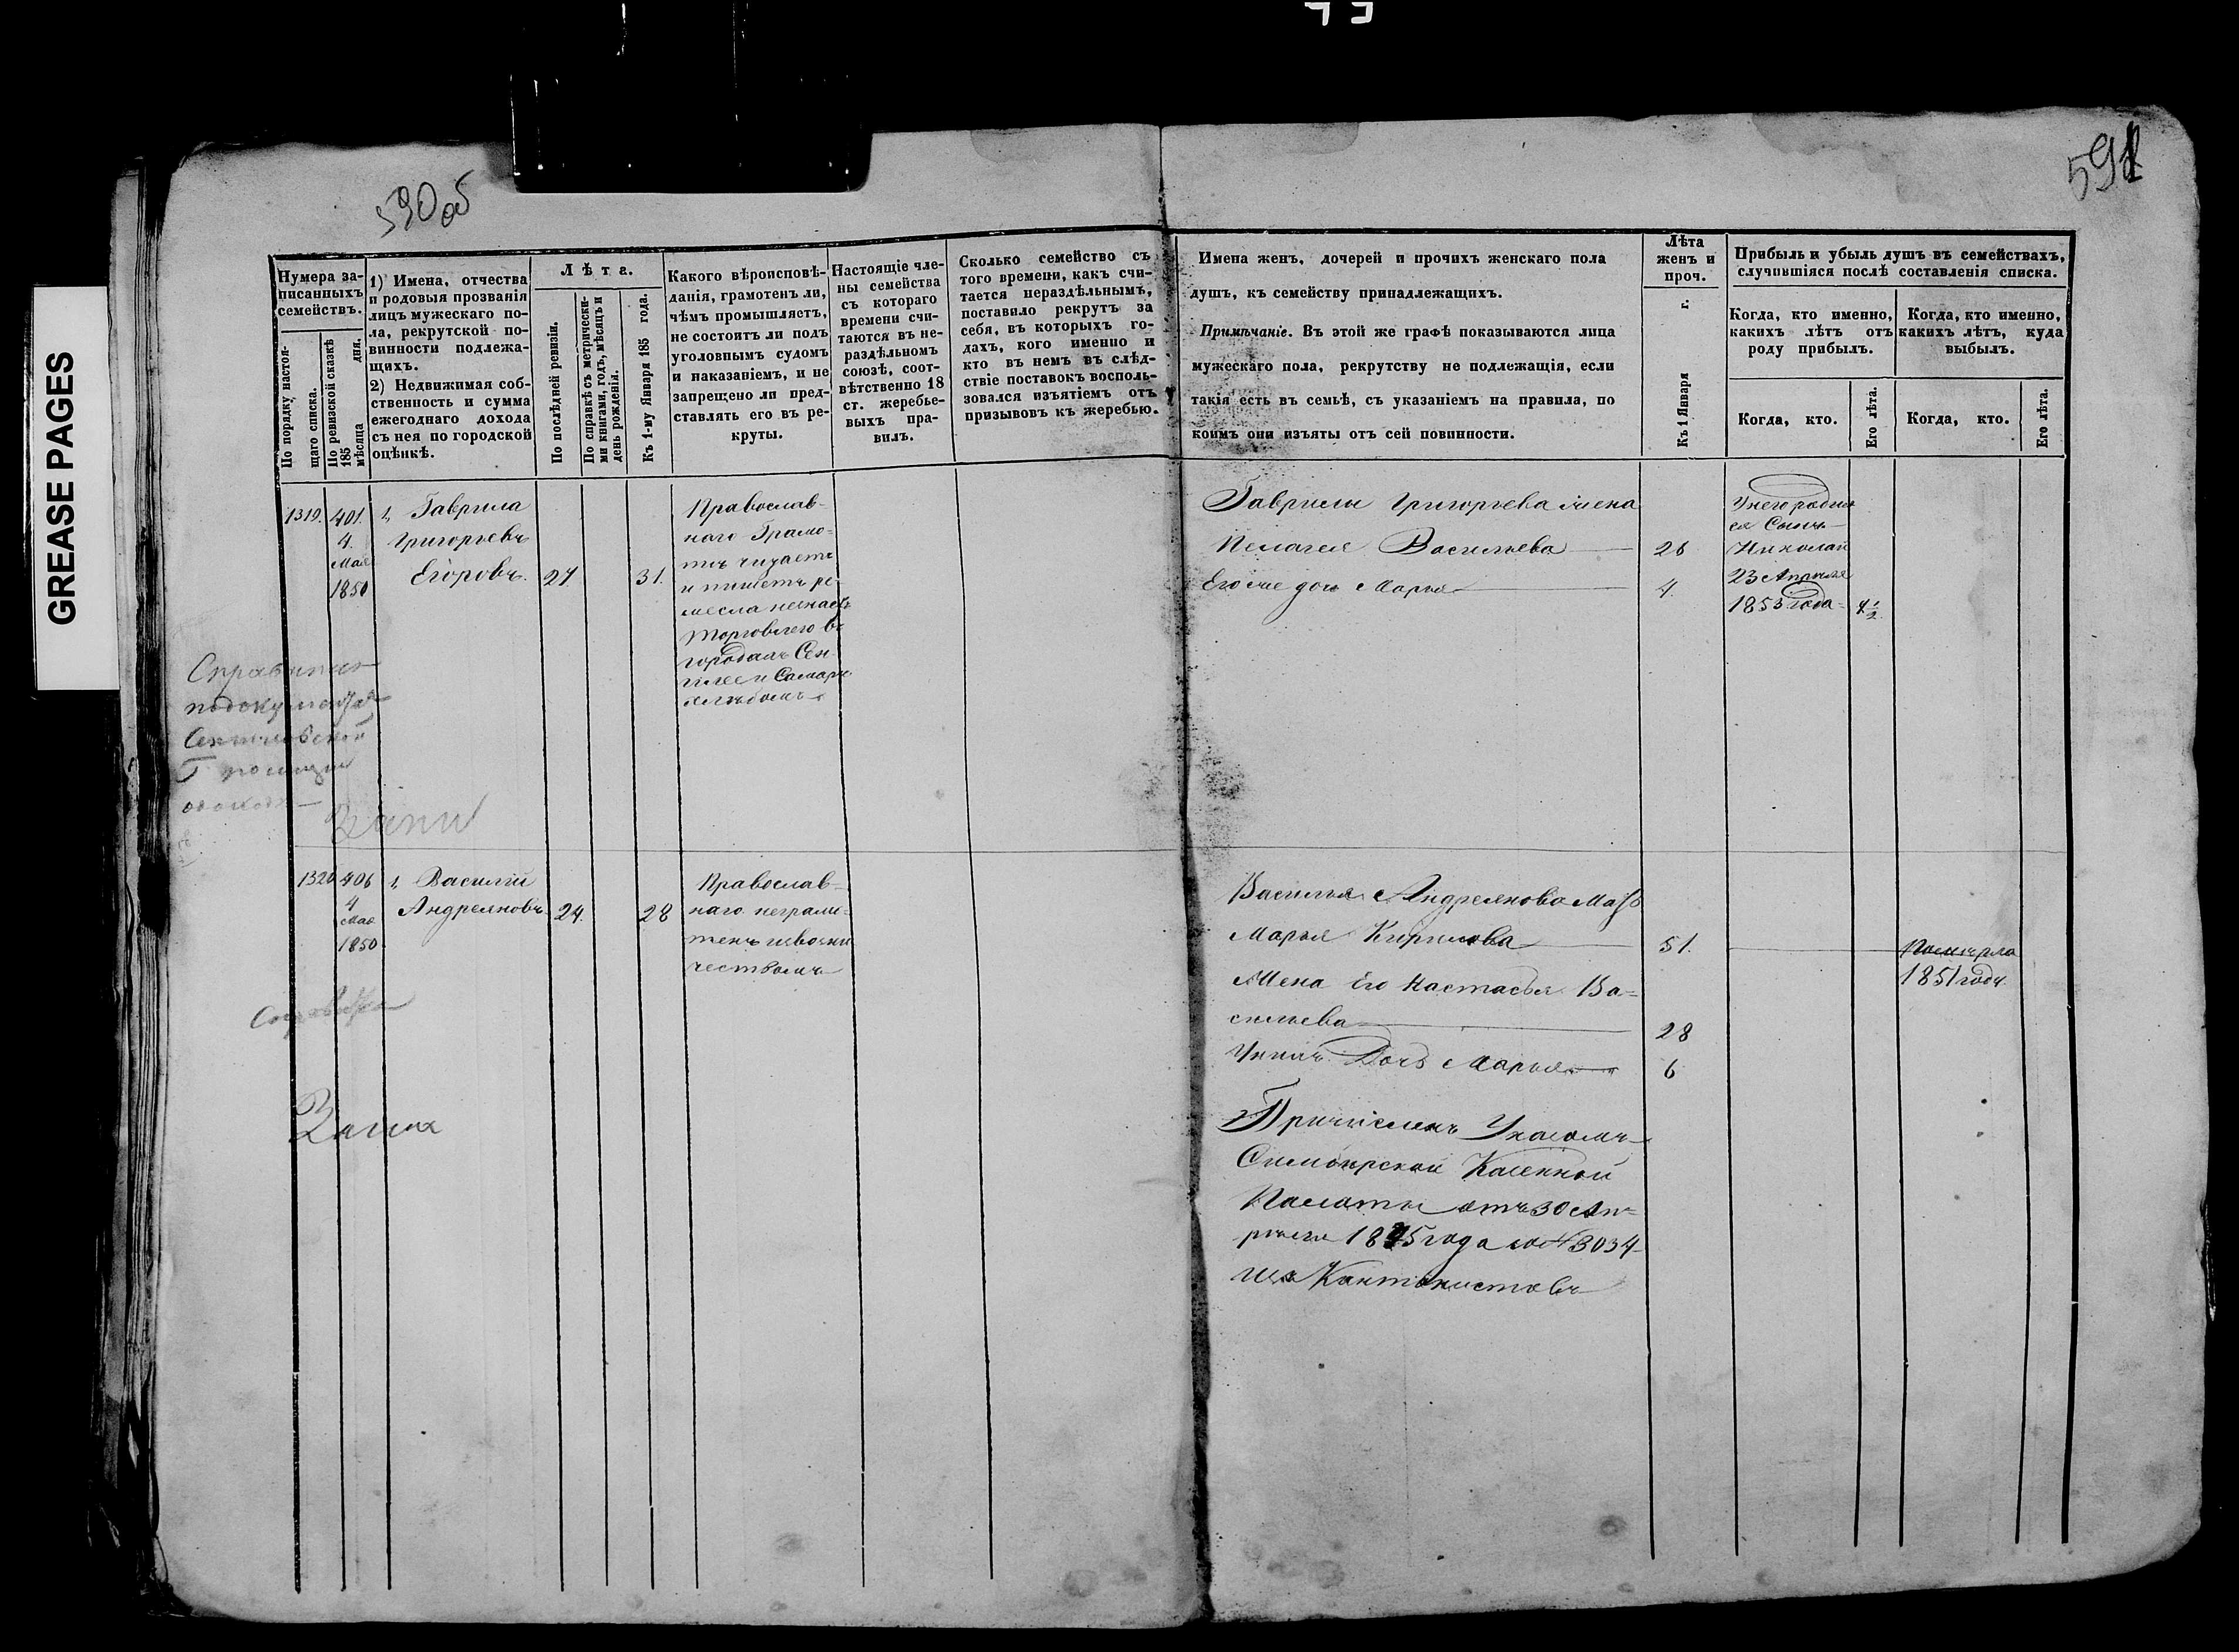 GREASE PAGES
590 об
591
Нумера записанныхъ семействъ.
По порядку настоящаго списка.
По ревизской сказкѣ 185 мѣсяца дня.
1) Имена, отчества
и родовыя прозванія
лицъ мужескаго по-
ла, рекрутской по-
винности подлежа-
щихъ.
2) Недвижимая соб-
ственность и сумма
ежегоднаго дохода
съ нея по городской
оцѣнкѣ.
Лѣта.
По послѣдней ревизіи.
По справкѣ съ метрически-
ми книгами, годъ, мѣсяцъ и
день рожденія.
Къ 1-му Января 185 года.
Какого вѣроисповѣ-
данія, грамотенъ ли,
чѣмъ промышляетъ,
не состоитъ ли подъ
уголовнымъ судомъ
и наказаніемъ, и не
запрещено ли пред-
ставлять его въ ре-
круты.
Настоящіе чле-
ны семейства
съ котораго
времени счи-
таются въ не-
раздѣльномъ
союзѣ, соот-
вѣтственно 18
ст. жеребье-
выхъ пра-
вилъ.
Сколько семейство съ
того времени, какъ счи-
тается нераздѣльнымъ,
поставило рекрутъ за
себя, въ которыхъ го-
дахъ, кого именно и
кто въ немъ въ слѣд-
ствіе поставокъ восполь-
зовался изъятіемъ отъ
призывовъ къ жеребью.
Имена женъ, дочерей и прочихъ женскаго пола
душъ, къ семейству принадлежащихъ.
Примѣчаніе. Въ этой же графѣ показываются лица
мужескаго пола, рекрутству не подлежащія, если
такія есть въ семьѣ, съ указаніемъ на правила, по
коимъ они изъяты отъ сей повинности.
Лѣта
женъ и
проч.
Къ 1 Января г.
Прибыль и убыль душъ въ семействахъ,
случившіяся послѣ составленія списка.
Когда, кто именно,
какихъ лѣтъ отъ
роду прибылъ.
Когда, кто именно,
какихъ лѣтъ, куда
выбылъ.
Когда, кто.
Его лѣта.
Когда, кто.
Его лѣта.
1319.
401.
4.
Мая
1850
1, Гаврила
Григорьевъ
Егоровъ.
27
31.
Православ-
наго Грамо-
тѣ читаетъ
и пишетъ ре-
месла
торговлею въ
городахъ Сен-
гилеи Самаре
хлебомъ
Гаврилы Григорьева жена
Пелагея Васильева
26
Его же дочь Марья
4.
У него родил
ся Сынъ
Николай
23 Апреля
1853 года
Справитца
1320
406
4
Мая
1850
1, Василій
Андреяновъ
24.
28
Православ-
наго неграмо-
тенъ извозни
чествомъ
Справка
Василья Андреянова Мать
Марья Кирилова
51.
Померла
1851 года
Жена Его Настасья Ва-
сильева
28
У нихъ Дочь Марья
6
Причисленъ Указомъ
Симбирской Казенной
Палаты отъ 30 Ап-
реля 1845 года за № 3034
изъ Кантонистовъ